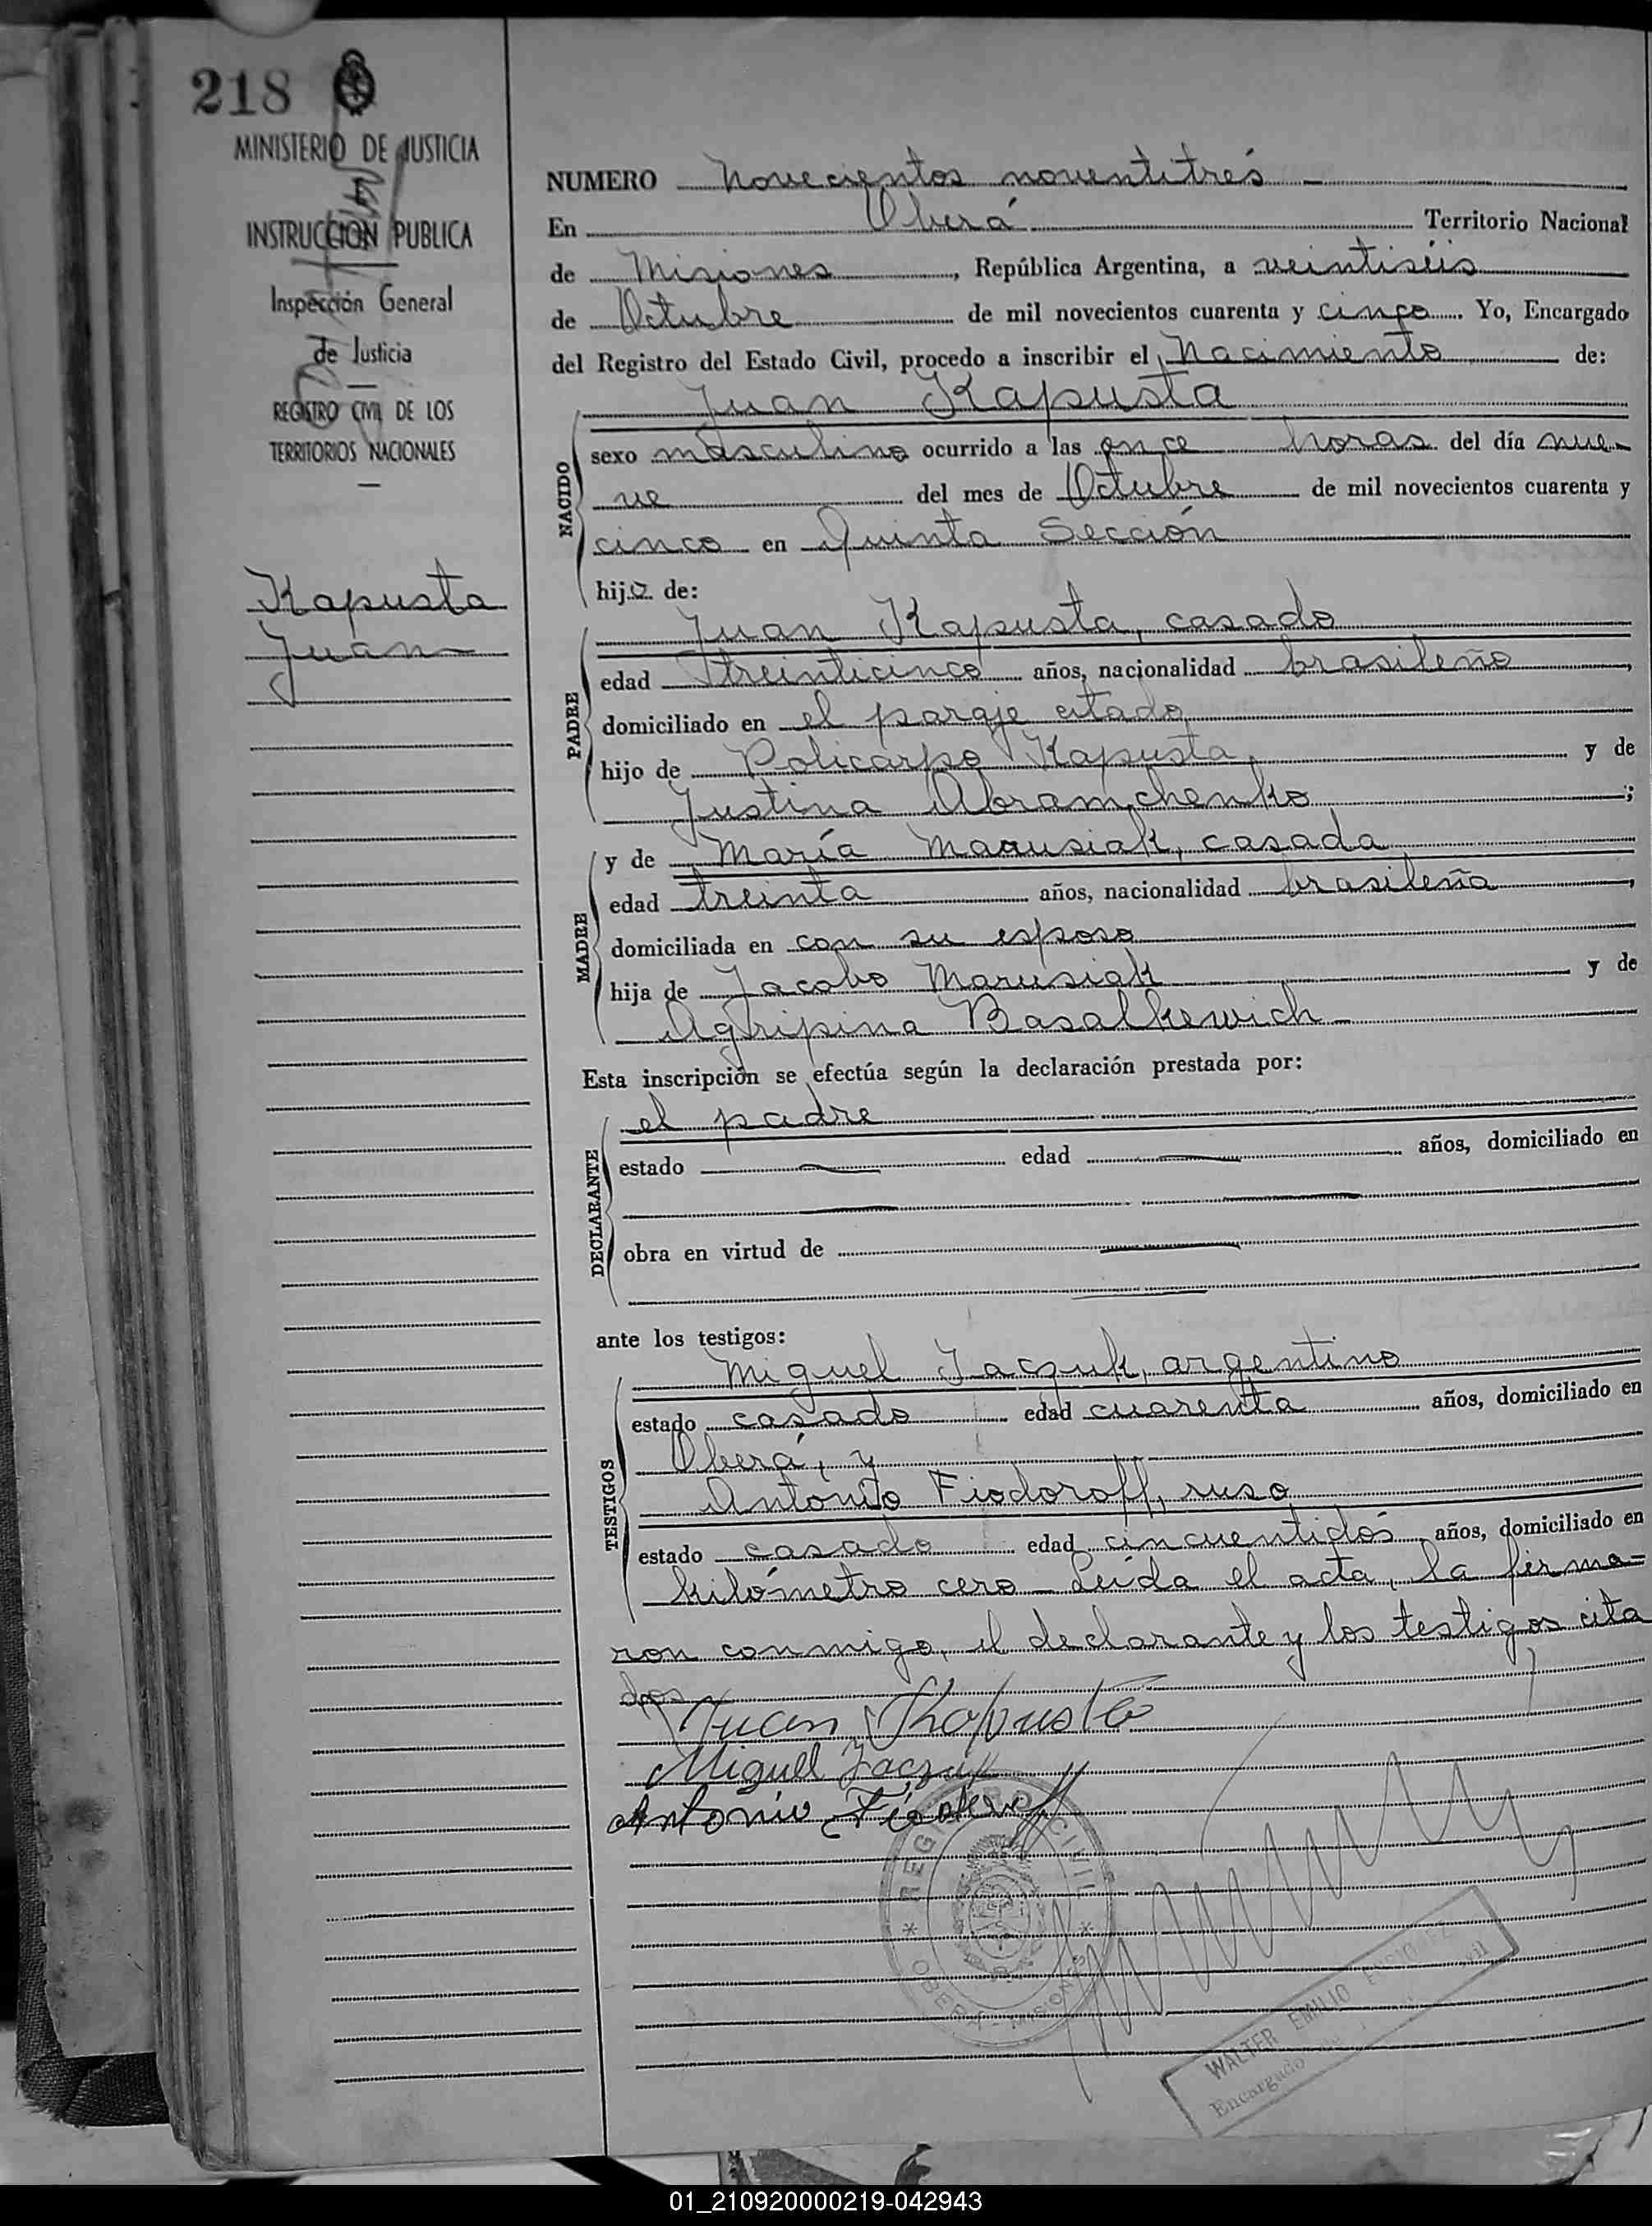 218
MINISTERIO DE JUSTICIA
INSTRUCCION PUBLICA
Inspección General
de Justicia
REGISTRO CIVIL DE LOS
TERRITORIOS NACIONALES
Kapusta
Juan
NUMERO Novecientos noventitrés
En Oberá Territorio Nacional
de Misiones, República Argentina, a veintiséis
de Octubre de mil novecientos cuarenta y cinco. Yo, Encargado
del Registro del Estado Civil, procedo a inscribir el Nacimiento de:
Juan Kapusta
NACIDO
sexo masculino ocurrido a las once horas del día nue-
ve del mes de Octubre de mil novecientos cuarenta y
cinco en Quinta Sección
hijo de:
PADRE
Juan Kapusta, casado
edad treinticinco años, nacionalidad brasileño,
domiciliado en el paraje citado
hijo de Policarpo Kapusta, y de
Justina Abramchenko;
MADRE
y de María Maausiak, casada
edad treinta años, nacionalidad brasileña,
domiciliada en con su esposo
hija de Jacobo Marusiak y de
Agripina Basalkewich
Esta inscripción se efectúa según la declaración prestada por:
DECLARANTE
el padre
estado edad años, domiciliado en
obra en virtud de
ante los testigos:
TESTIGOS
Miguel Jaczuk, argentino
estado casado edad cuarenta años, domiciliado en
Oberá, y
Antonio Fiodoroff, ruso
estado casado edad cincuentidós años, domiciliado en
kilómetro cero - Leída el acta, la firma=
ron conmigo, el declarante y los testigos cita
dos
Juan Kapusta
Miguel Jaczuk
Antonio Fiodoroff
REGISTRO CIVIL
* OBERÁ - MISIONES *
WALTER EMILIO
Encargado
01_210920000219-042943